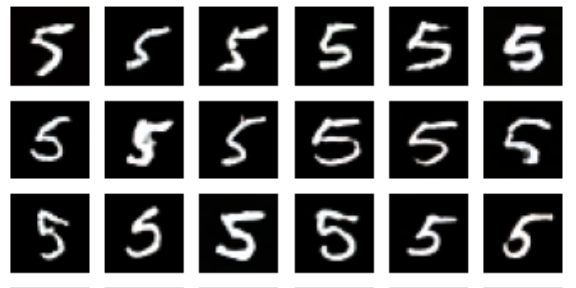 5 5 5 5 5 5
5 5 5 5 5 5
5 5 5 5 5 5